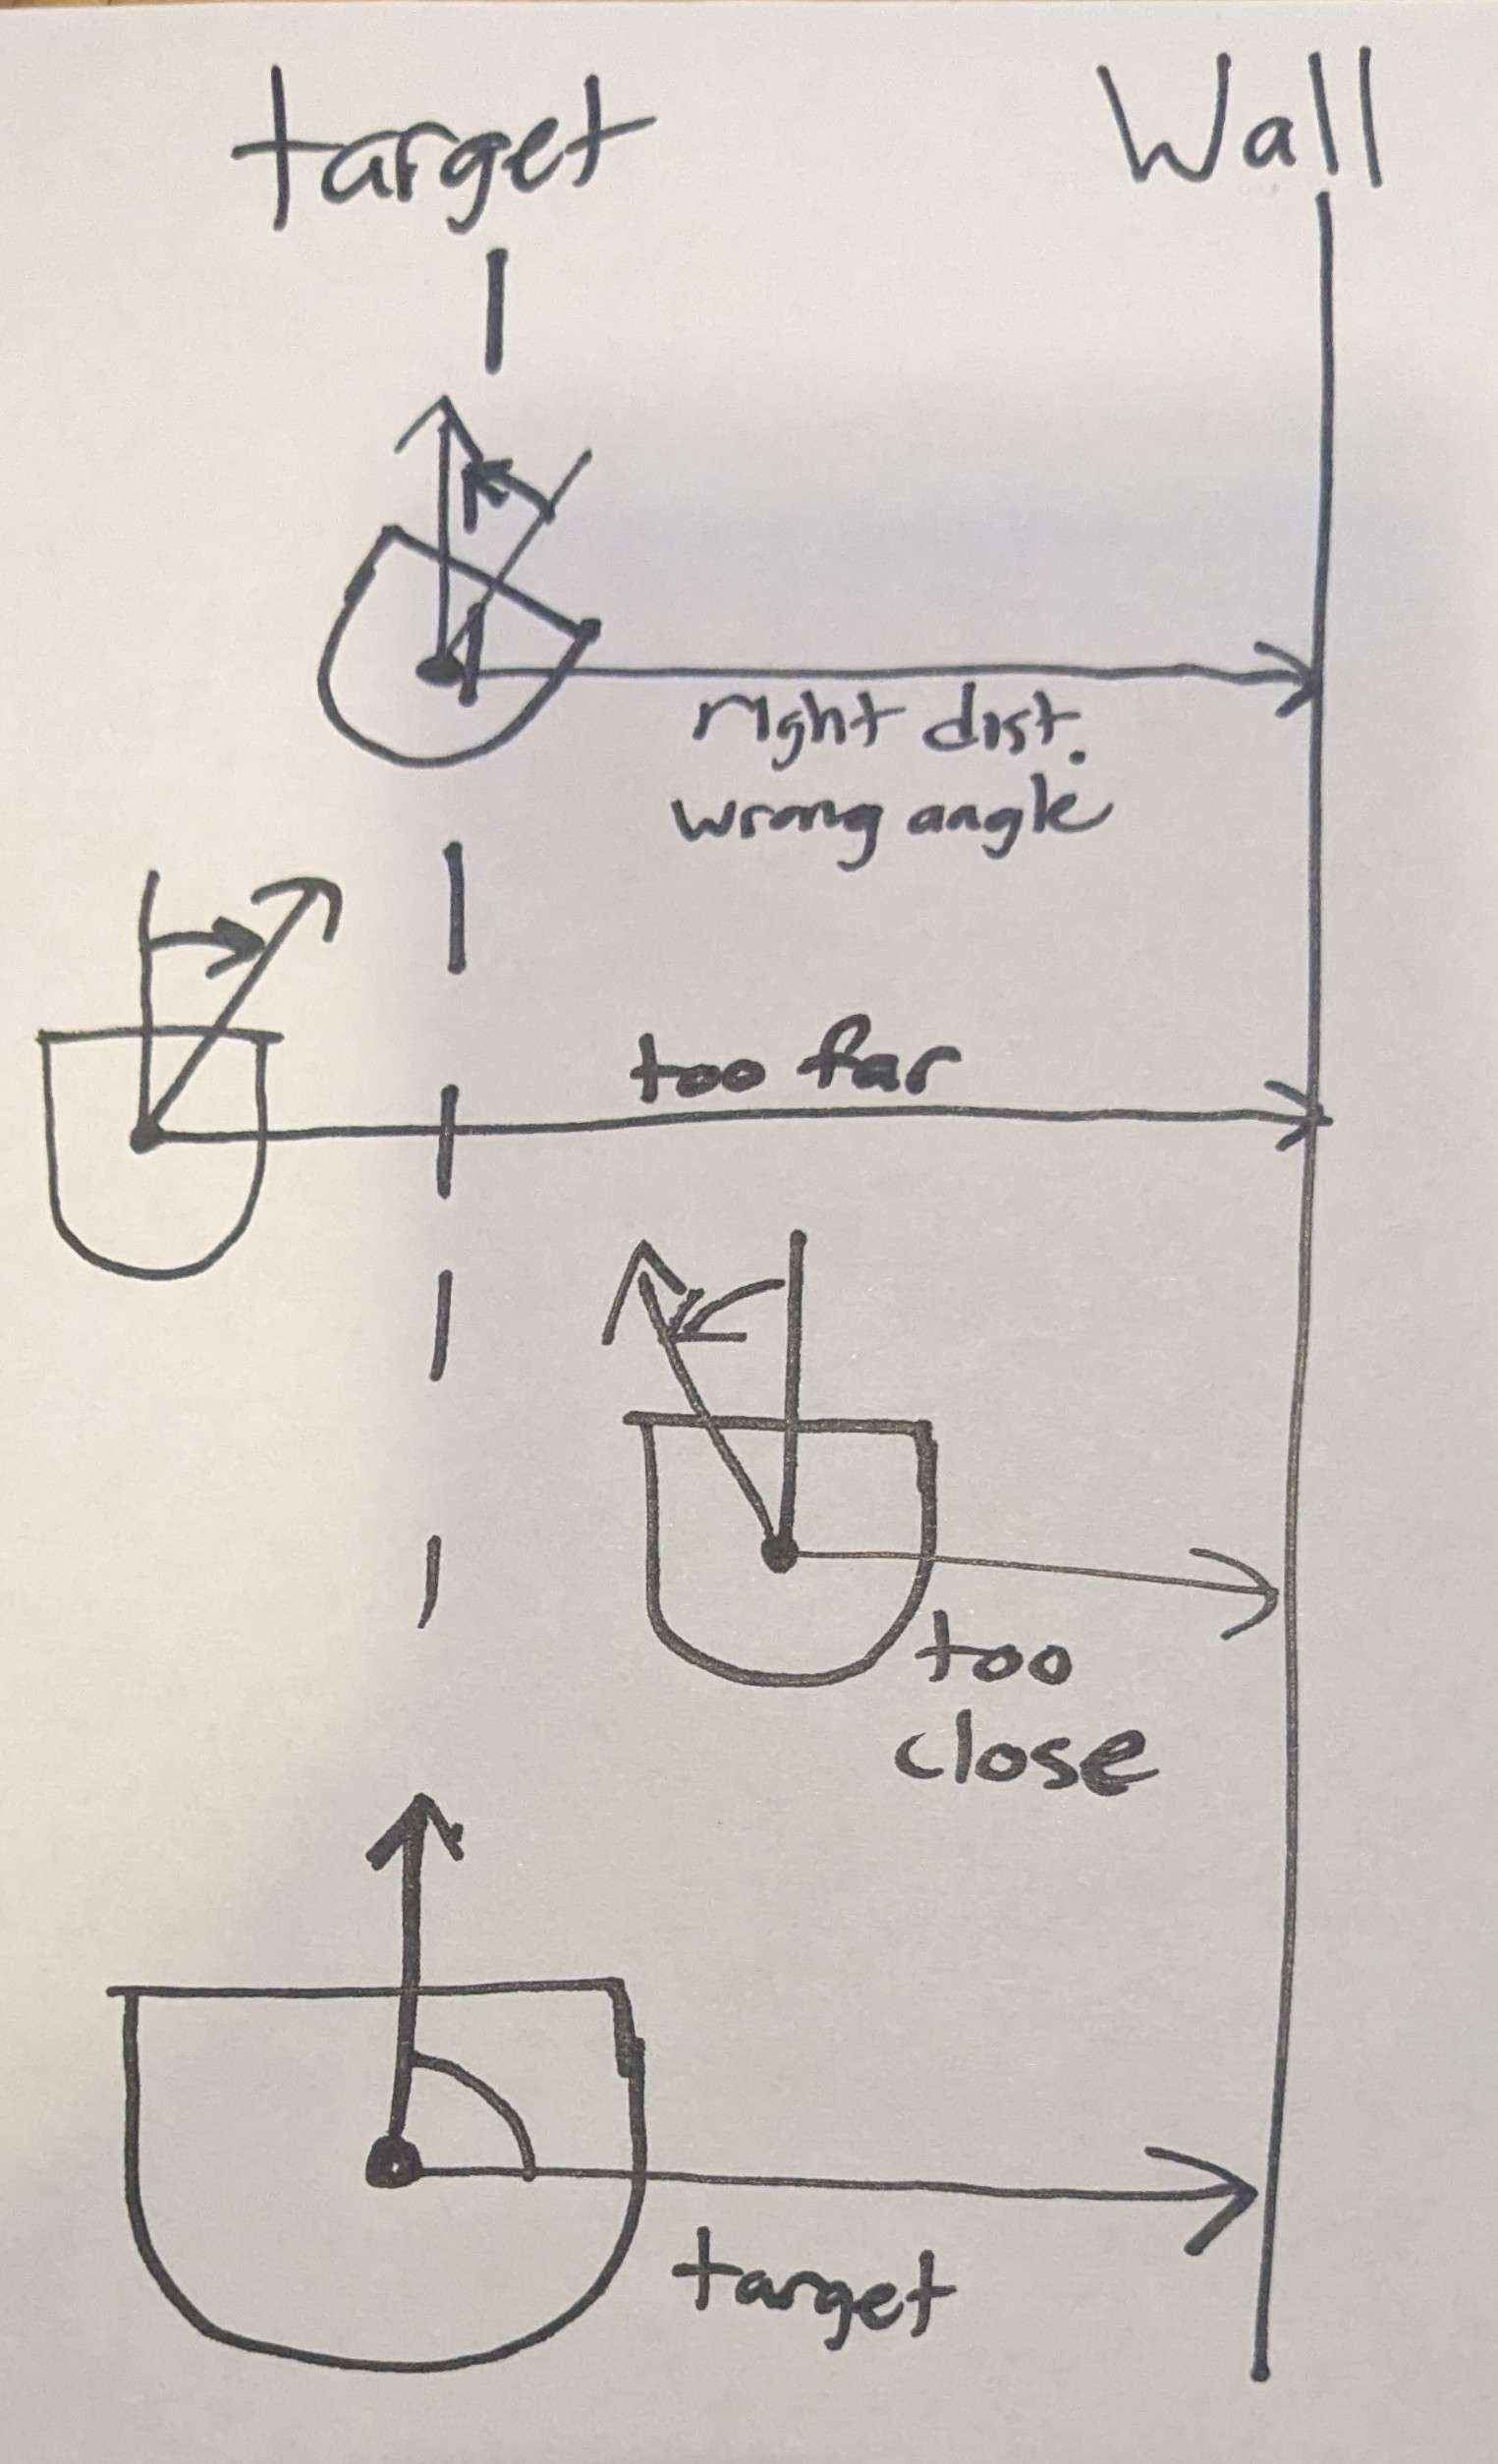 target
Wall
right dist.
wrong angle
too far
too
close
target